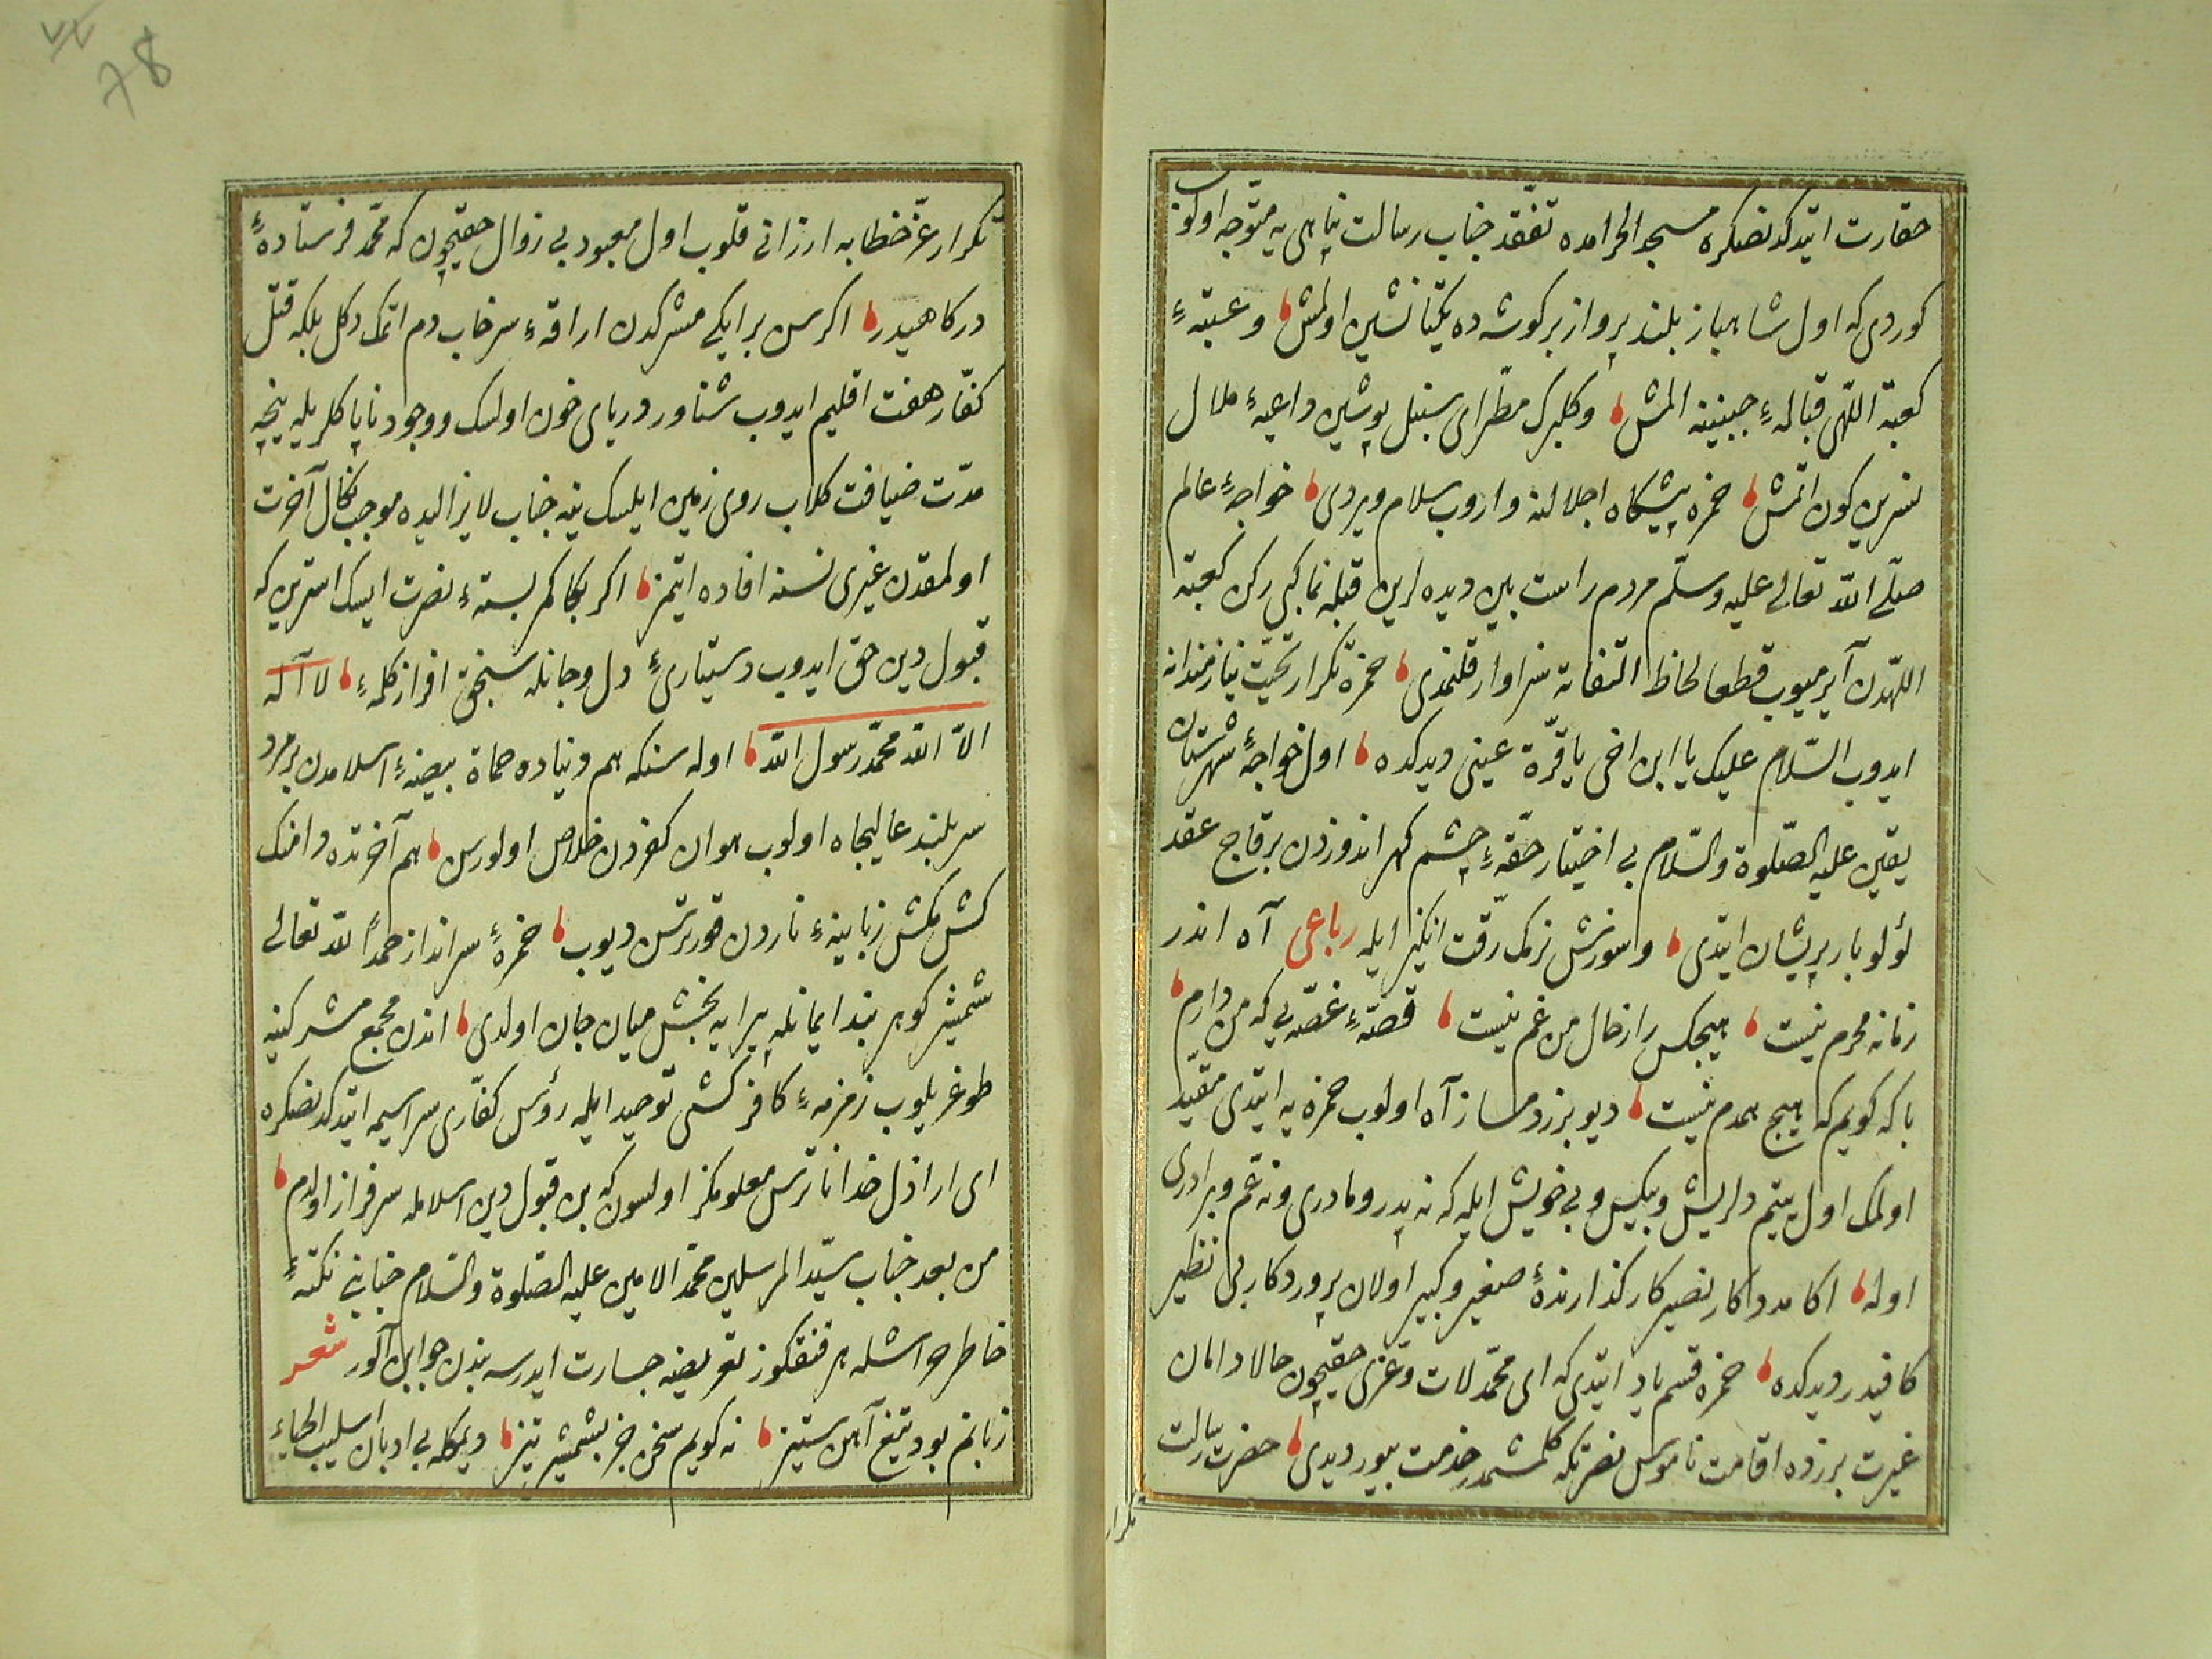 حقارت ایتدكدنصكره مسجد الحرامده تفقد جناب رسالت پناهی یه متوجه اولوب
كوردی كه اول شاهباز بلند پرواز بر كوشه ده یكتا نشین اولمش و عتبهٔ
كعبة اللهی قبالهٔ جبیننه المش وكلبرك مطرای سنبل پوشین داعیهٔ ملال
نسرین كون اتمش حمزه پیشكاه اجلالنه واروب سلام ویردی خواجهٔ عالم
صلی الله تعالی علیه وسلم مردم راست بین دیده لرین قبله نما كبی ركن كعبة
اللهدن آیرمیوب قطعا لحاظ التفاته سزاوار قلنمدی حمزه تكرار تحیت نیازمندانه
ایدوب السلام علیك یا ابن اخی یا قرة عینی دیدكده اول خواجهٔ شهرستان
یقین علیه الصلوة والسلام بی اختیار حقهٔ چشم كهر اندوزدن بر قاج عقد
لؤلو بار پریشان ایتدی وسوزش نرمك رقت انكیز ایله رباعی آه اندر
زمانه محرم نیست هیچكس را ز حال من غم نیست قصهٔ غصه یی كه من دارم
با كه كویم كه هیچ همدم نیست دیو بزر دمساز آه اولوب حمزه یه ایتدی مقید
اولمك اول یتیم دلریش وبیكس وبی خویش ایله كه نه پدر ومادری ونه عم وبرادری
اوله اكا مددكار نصیر كار كذارندهٔ صغیر وكبیر اولان پروردكار بی نظیر
كافیدر دیدكده حمزه قسم یاد ایتدی كه ای محمد لات وعزی حقیچون حالا دامان
غیرت برزده اقامت ناموس نصرتكه كلمشمدر خدمت بیور دیدی حضرت رسالت
تكرار
78
تكرار عز خطابه ارزانی قلوب اول معبود بی زوال حقیچون كه محمد فرستادهٔ
دركاهیدر اكر سن بر ایكی مشركدن اراقهٔ سرخاب دم اتمك دكل بلكه قتل
كفار هفت اقلیم ایدوب شناور دریای خون اولسك ووجود ناپاكلریله نیچه
مدت ضیافت كلاب روی زمین ایلسك ینه جناب لایزالیده موجب نكال آخرت
اولمقدن غیری نسنه افاده ایتمز اكر بكا كمر بستهٔ نصرت ایسك استرین كه
قبول دین حق ایدوب دستیاریٔ دل وجانله سنجق افراز كلمهٔ لا آله
الا الله محمد رسول الله اوله سنكه هم دنیاده حماة بیضهٔ اسلامدن بر مرد
سربلند عالیجاه اولوب هوان كفردن خلاص اولورسن هم آخرتده دامنك
كش مكش زبانیهٔ ناردن قورتررسن دیوب حمزهٔ سرانداز حمدا لله تعالی
شمشیر كوهر بند ایمانله پیرایه بخش میان جان اولدی اندن مجمع مشركینه
طوغریلوب زمزمهٔ كافر كشی توحید ایله رؤس كفاری سراسیمه ایتدكدنصكره
ای اراذل خدا ناترس معلومكز اولسون كه بن قبول دین اسلامله سرفراز اولدم
من بعد جناب سید المرسلین محمد الامین علیه الصلوة والسلام جنابنی نكتهٔ
خاطر خراشله هر قنغكوز تعریضنه جسارت ایدرسه بندن جوابن آلور شعر
زبانم بود تیغ آهن ستیز نه كویم سخن جز بشمشیر تیز دیمكله بی ادبان سلیب الحیاء